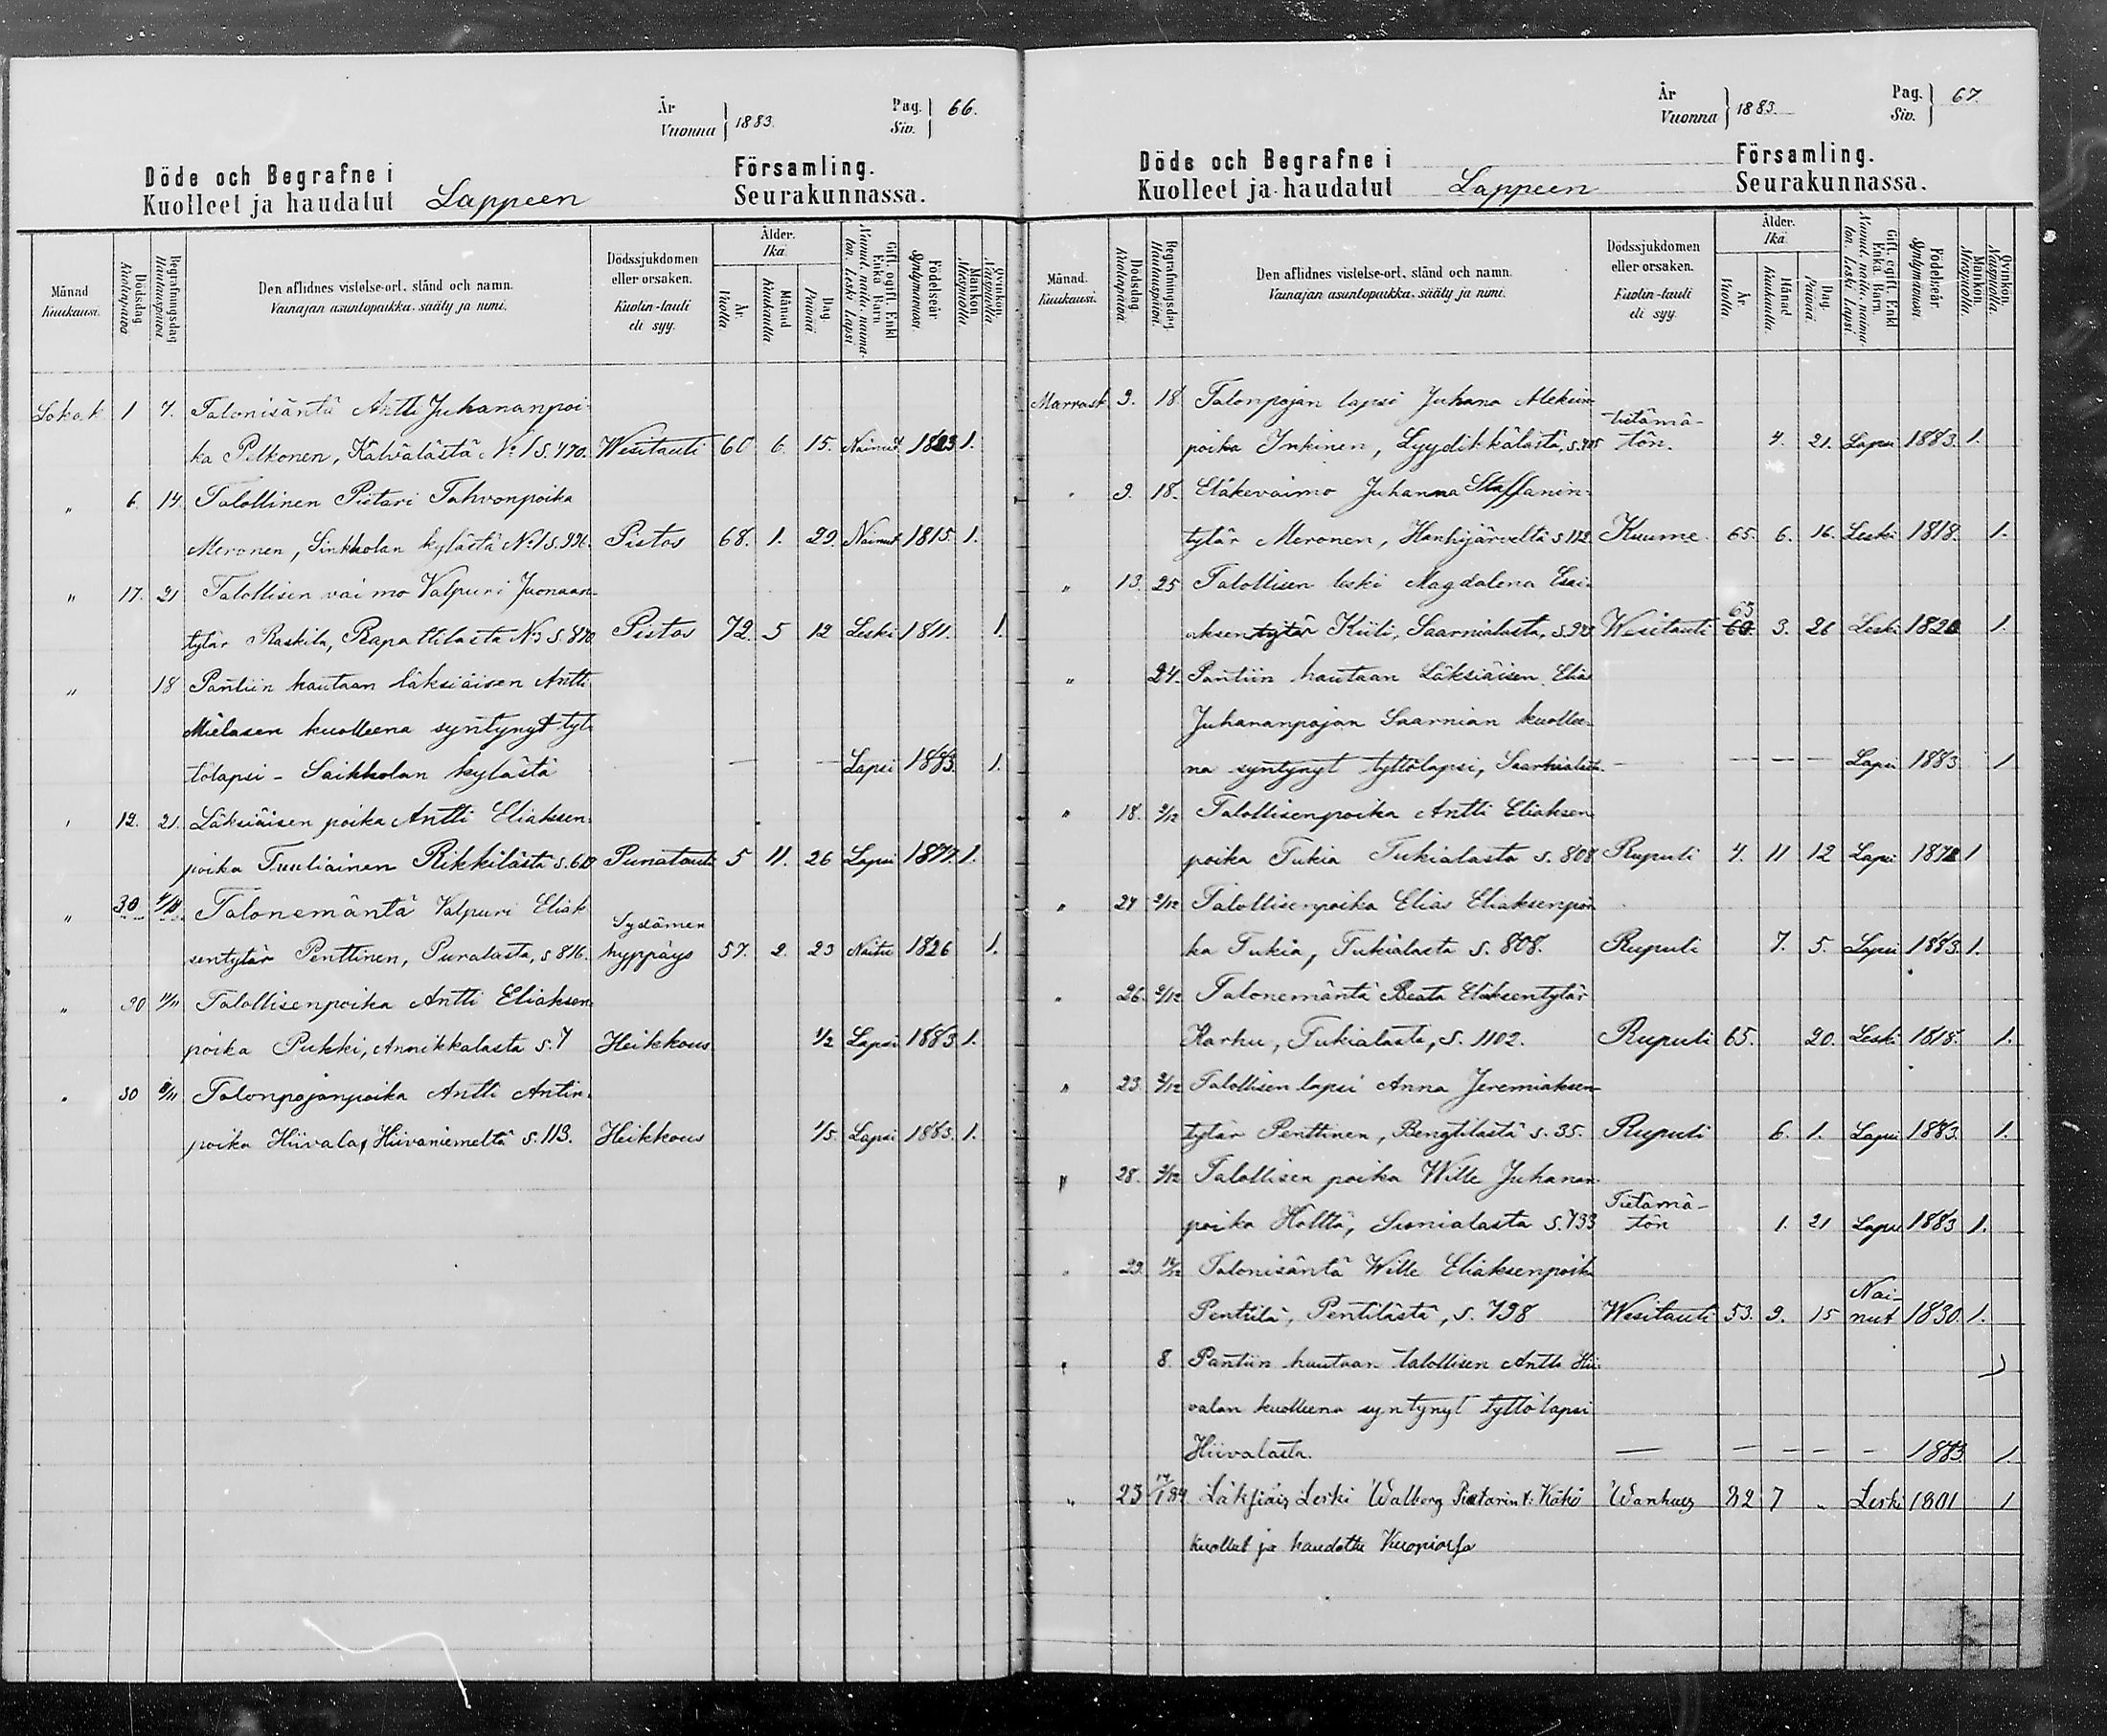 År
Vuonna } 1883. Pag.
Siv. } 66.
Döde och Begrafne i Församling.
Kuolleet ja haudatut Lappeen Seurakunnassa.
Månad Kuukausi.
Dödsdag Kuolinpäivä
Begrafningsdag Hautauspäivä
Den aflidnes vistelse-ort, stånd och namn.
Vainajan asuntopaikka, sääty ja nimi.
Dödssjukdomen eller orsaken.
Kuolin-tauti eli syy.
Ålder. Ikä.
År. Vuotta
Månad Kuukautta
Dag. Päivää
Gift, ogift, Enkl. Enka. Barn
Nainut, naitu, naimaton, Leski, Lapsi
Födelseår. Syntymävuosi.
Mankön Miespuolta
Qvinkön. Vaispuolta
Lokak 1 7. Talonisäntä Antti Juhananpoi-
ka Pelkonen, Kälvälästä № 1 s. 470. Wesitauti 60 6. 15. Nainut 1823 1.
" 6. 14 Talollinen Pietari Tahvonpoika
Meronen, Sinkkolan kylästä № 1 s. 996. Pistos 68. 1. 29. Nainut 1815. 1.
" 17. 21 Talollisen vaimo Valpuri Juonaan-
tytär Raskila, Rapattilasta № 3 s. 870 Pistos 72. 5 12 Leski 1811. 1.
" 18 Pantiin hautaan läksiäisen Antti
Mielosen kuolleena syntynyt tyt-
tölapsi - Saikkolan kylästä — — Lapsi 1883. 1.
" 12. 21. Läksiäisen poika Antti Eliaksen-
poika Tuuliainen Rikkilästä Punatauti 5 11. 26 Lapsi 1877. 1.
" 30 Talonemäntä Valpuri Eliak-
sentytär Penttinen, Puralasta, s 816. Sydämen
hyppäys 57. 2. 23 Naitu 1826 1.
" 30 Talollisenpoika Antti Eliaksen-
poika Pukki, Annikkalasta s. 7 Heikkous 1/2 Lapsi 1883 1.
" 30 Talonpojanpoika Antti Antin-
poika Hiivala, Hiivaniemeltä s. 113. Heikkous 1/5 Lapsi 1883. 1.
År
Vuonna } 1883. Pag.
Siv. } 67.
Döde och Begrafne i Församling.
Kuolleet ja haudatut Lappeen Seurakunnassa.
Månad. Kuukausi.
Dödsdag Kuolinpäivä
Begrafningsdag Hautauspäivä.
Den aflidnes vistelse-ort, stånd och namn.
Vainajan asuntopaikka, sääty ja nimi.
Dödssjukdomen eller orsaken.
Kuolin-tauti eli syy.
Ålder. Ikä.
År. Vuotta
Månad Kuukautta.
Dag. Päivää.
Gift, ogift, Enkl. Enka. Barn.
Nainut, naitu, naimaton, Leski, Lapsi.
Födelseår. Syntymävuosi.
Mankön. Miespuolta.
Qvinkön. Vaispuolta.
Marrask. 9. 18. Talonpojan lapsi Juhana
poika Inkinen, Lyydikkälästä, tietämä-
tön. 4. 21. Lapsi 1883. 1.
" 9. 18. Eläkevaimo Juhanna Staffanin-
tytär Meronen, Hanhijärveltä s 112. Kuume. 65. 6. 16. Leski 1818. 1.
" 13. 25 Talollisen leski Magdalena Esai-
aksentytär Kiili, Saarnialasta, Wesitauti 63 3. 26 Leski 1820 1.
" 24. Pantiin hautaan Läksiäisen Elia
Juhananpojan Saarnian kuollee-
na syntynyt tyttölapsi, Saarnialasta. — — — — Lapsi 1883 1
" 18. 2/12 Talollisenpoika Antti Eliaksen
poika Tukia Tukialasta s. 808 Rupuli 4. 11 12 Lapsi 1878 1
" 24 2/12 Talollisenpoika Elias Eliaksenpoi-
ka Tukia, Tukialasta s. 808. Rupuli 7. 5. Lapsi 1883. 1.
" 26. 2/12 Talonemäntä Beata Eliaksentytär
Karhu, Tukialasta, s. 1102. Rupuli 65. 20. Leski 1818. 1.
" 23. 2/12 Talollisen lapsi Anna Jeremiaksen-
tytär Penttinen, Bengtilästä s. 35. Rupuli 6. 1. Lapsi 1883. 1.
" 28. 2/12 Talollisen poika Wille Juhanan-
poika Holttä, s. 733 Tietämä-
tön 1. 21 Lapsi 1883 1.
" 29. Talonisäntä Wille Eliaksenpoika
Penttilä, Pentilästä, s. 798 Wesitauti 53. 9. 15 Nai-
nut 1830. 1.
" 8. Pantiin hautaan talollisen Antti Hii-
valan kuolleena syntynyt tyttölapsi
Hiivalasta. — — — — — 1883 1
" 23 Läksiäis Leski Walborg Pietarin t. Wanhuus 82 7 " Leski 1801 1
kuollut ja haudattu Kuopiossa